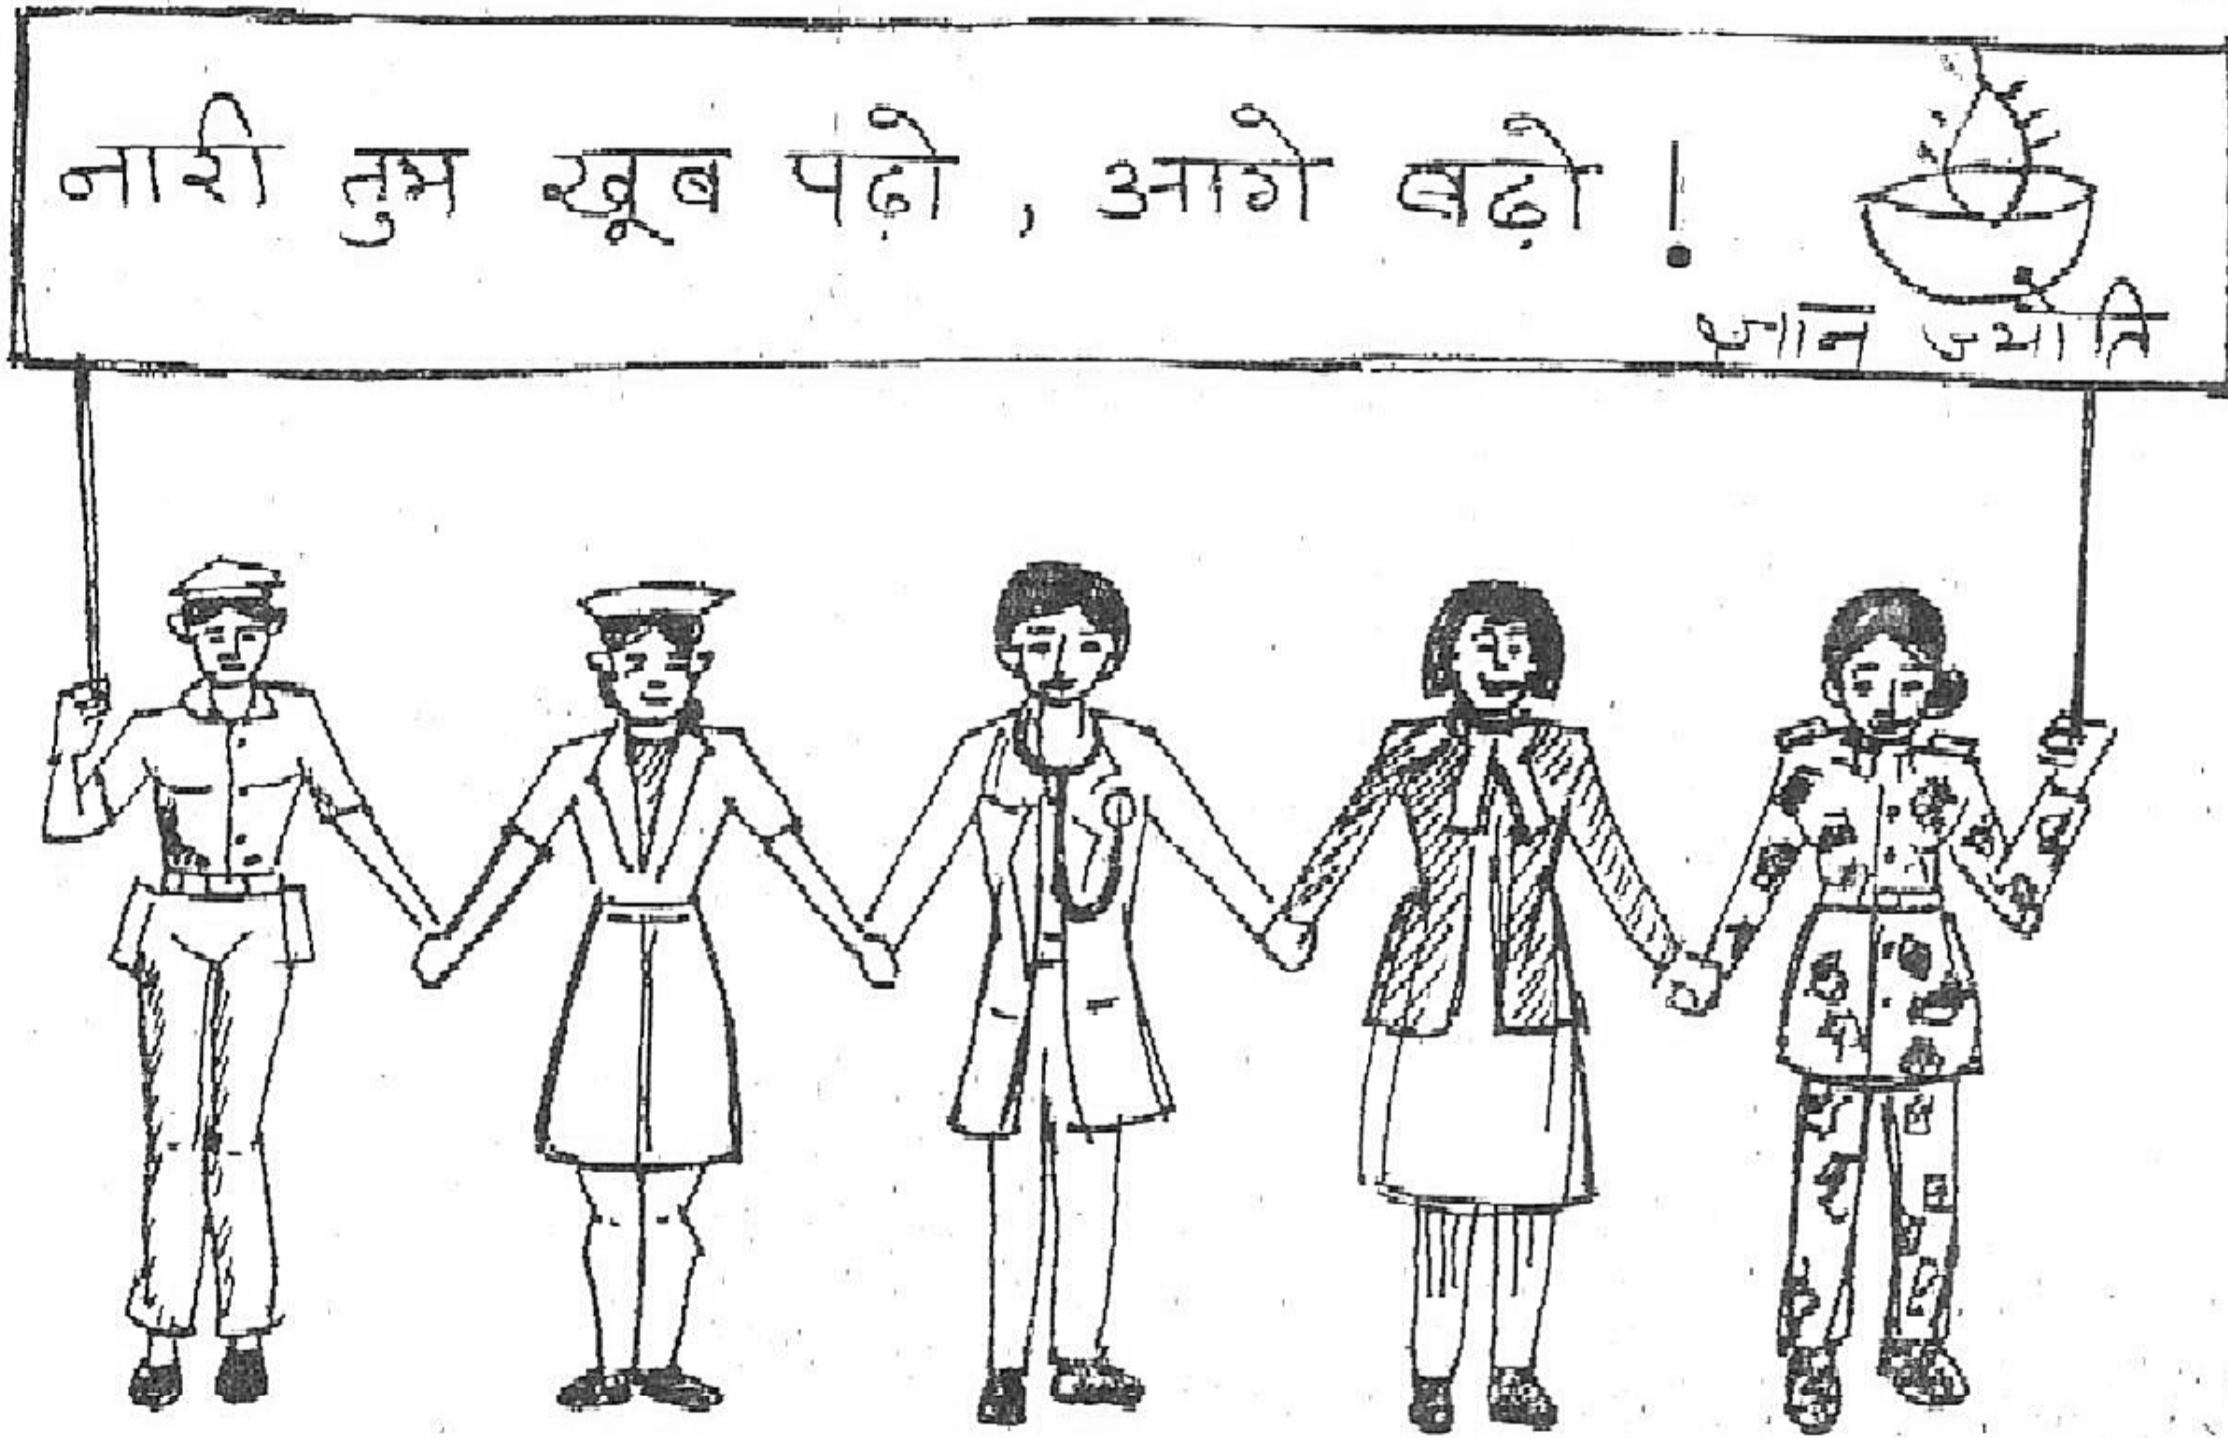 नारी तुम खूब पढ़ो, आगे बढ़ो!
ज्ञान ज्योति